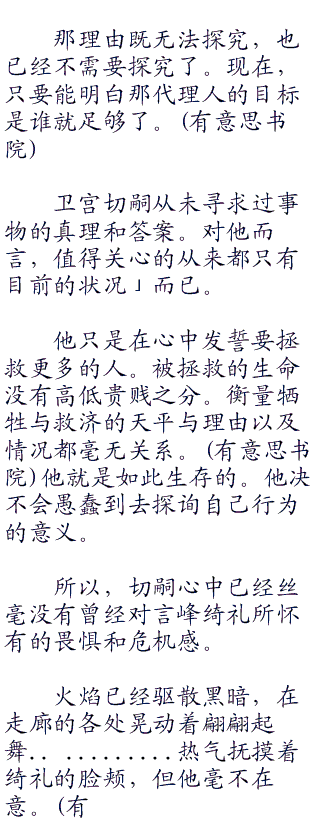 那理由既无法探究，也
已经不需要探究了。现在，
只要能明白那代理人的目标
是谁就足够了。(有意思书
院)
卫宫切嗣从未寻求过事
物的真理和答案。对他而
言，值得关心的从来都只有
目前的状况」而已。
他只是在心中发誓要拯
救更多的人。被拯救的生命
没有高低贵贱之分。衡量牺
牲与救济的天平与理由以及
情况都毫无关系。(有意思书
院)他就是如此生存的。他决
不会愚蠢到去探询自己行为
的意义。
所以，切嗣心中已经丝
毫没有曾经对言峰绮礼所怀
有的畏惧和危机感。
火焰已经驱散黑暗，在
走廊的各处晃动着翩翩起
舞.. .........热气抚摸着
绮礼的脸颊，但他毫不在
意。(有